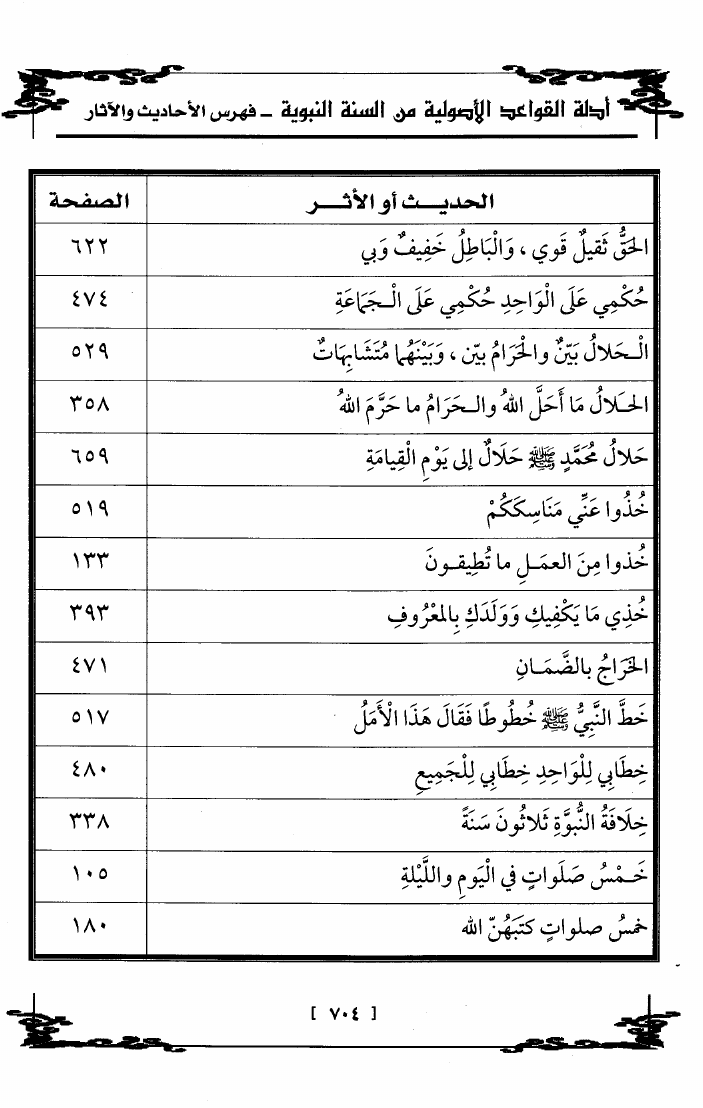 أدلة القواعد الأصولية من السنة النبوية ـ فهرس الأحاديث والآثار
الحديـــث أو الأثـــر الصفحة
الحَقُّ ثَقيلٌ قَوي ، وَالْبَاطِلُ خَفِيفٌ وَبي ٦٢٢
حُكْمِي عَلَى الْوَاحِدِ حُكْمِي عَلَى الْـجَمَاعَةِ ٤٧٤
الْـحَلالُ بَيِّنٌ والحَرَامُ بيّن ، وَبَيْنَهُما مُتَشَابِهَاتٌ ٥٢٩
الحَلالُ مَا أَحَلَّ اللهُ والـحَرَامُ ما حَرَّمَ اللهُ ٣٥٨
حَلالُ مُحَمَّدٍ ﷺ حَلَالٌ إلى يَوْمِ الْقِيامَةِ ٦٥٩
خُذُوا عَنِّي مَنَاسِكَكُمْ ٥١٩
خُذوا مِنَ العمَـلِ ما تُطِيقـونَ ١٣٣
خُذِي مَا يَكْفِيكِ وَوَلَدَكِ بِالمعْرُوفِ ٣٩٣
الخَرَاجُ بالضَّمَـانِ ٤٧١
خَطَّ النَّبِيُّ ﷺ خُطُوطًا فَقَالَ هَذَا الْأَمَلُ ٥١٧
خِطَابِي لِلْوَاحِدِ خِطَابِي لِلْجَمِيعِ ٤٨٠
خِلَافَةُ النُّبوَّةِ ثَلاثُونَ سَنَةً ٣٣٨
خَـمْسُ صَلَواتٍ في الْيَومِ واللَّيْلةِ ١٠٥
خمسُ صلواتٍ كتبَهُنّ الله ١٨٠
[ ٧٠٤ ]